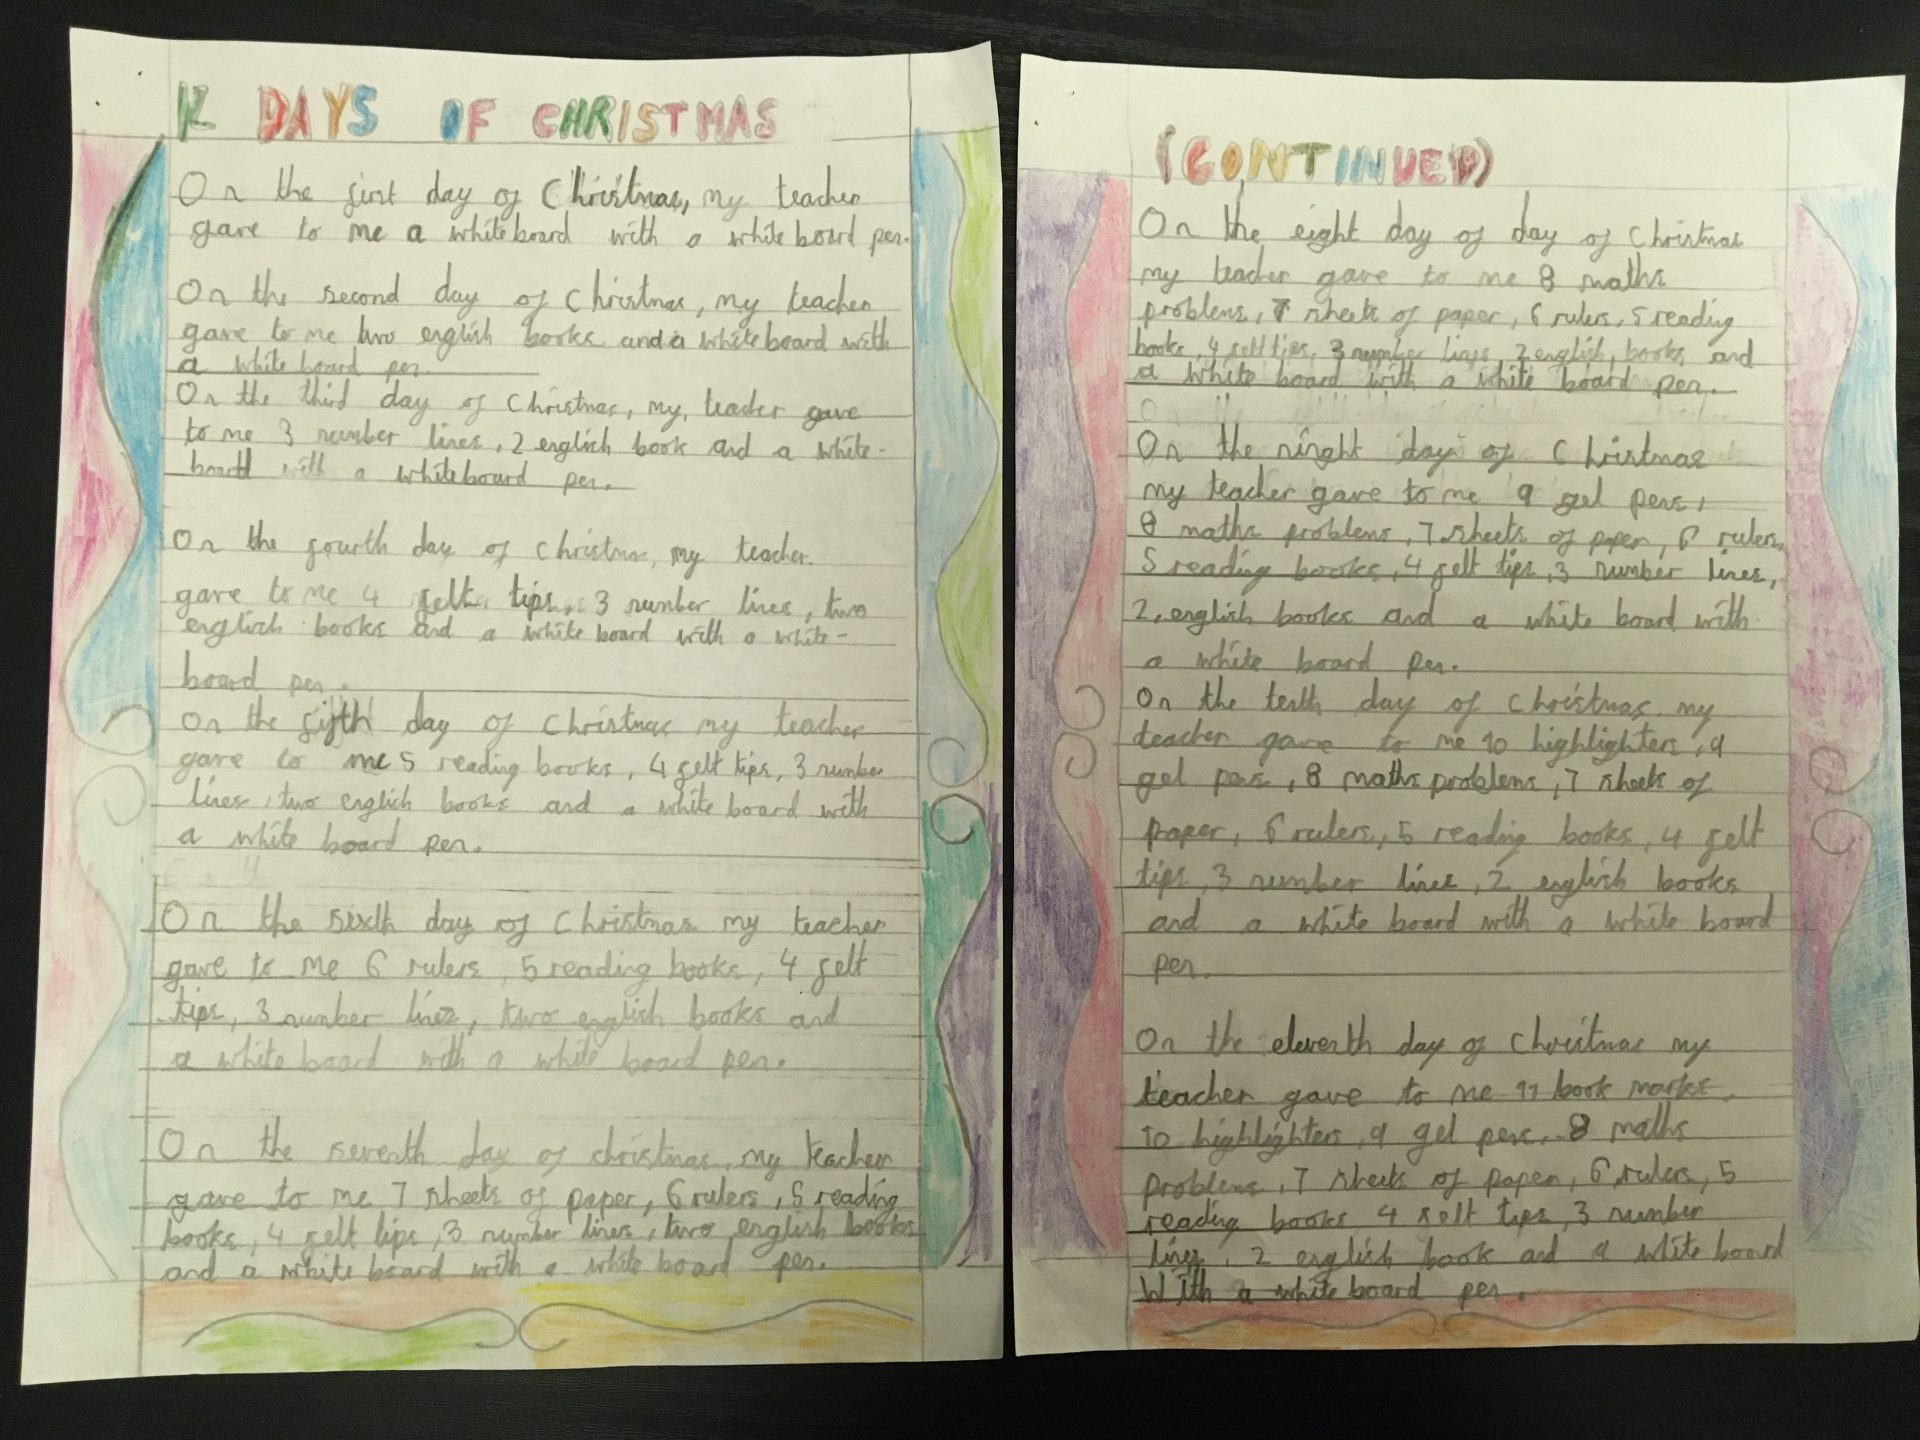 12 DAYS OF CHRISTMAS
On the first day of Christmas, my teacher
gave to me a whiteboard with a white board pen.
On the second day of Christmas, my teacher
gave to me two english books and a whiteboard with
a white board pen.
On the third day of Christmas, my teacher gave
to me 3 number lines, 2 english book and a white-
board with a whiteboard pen.
On the fourth day of Christmas, my teacher.
gave to me 4 felt tips, 3 number lines, two
english books and a white board with a white-
board pen.
On the fifth day of Christmas my teacher
gave to me 5 reading books, 4 felt tips, 3 number
lines, two english books and a white board with
a white board pen.
On the sixth day of Christmas my teacher
gave to me 6 rulers, 5 reading books, 4 felt
tips, 3 number lines, two english books and
a white board with a white board pen.
On the seventh day of christmas, my teacher
gave to me 7 sheets of paper, 6 rulers, 5 reading
books, 4 felt tips, 3 number lines, two english books
and a white board with a white board pen.
(CONTINUED)
On the eight day of day of Christmas
my teacher gave to me 8 maths
problems, 7 sheets of paper, 6 rulers, 5 reading
books, 4 felt tips, 3 number lines, 2 english, books and
a white board with a white board pen.
On the ninght day of Christmas
my teacher gave to me 9 gel pens,
8 maths problems, 7 sheets of paper, 6 rulers,
5 reading books, 4 felt tips, 3 number lines,
2, english books and a white board with
a white board pen.
On the tenth day of Christmas my
teacher gave to me 10 highlighters, 9
gel pens, 8 maths problems, 7 sheets of
paper, 6 rulers, 5 reading books, 4 felt
tips, 3 number lines, 2 english books
and a white board with a white board
pen.
On the eleventh day of Christmas my
teacher gave to me 11 book marks,
10 highlighters, 9 gel pens, 8 maths
problems, 7 sheets of paper, 6 rulers, 5
reading books 4 felt tips, 3 number
lines, 2 english book and a white board
With a white board pen.